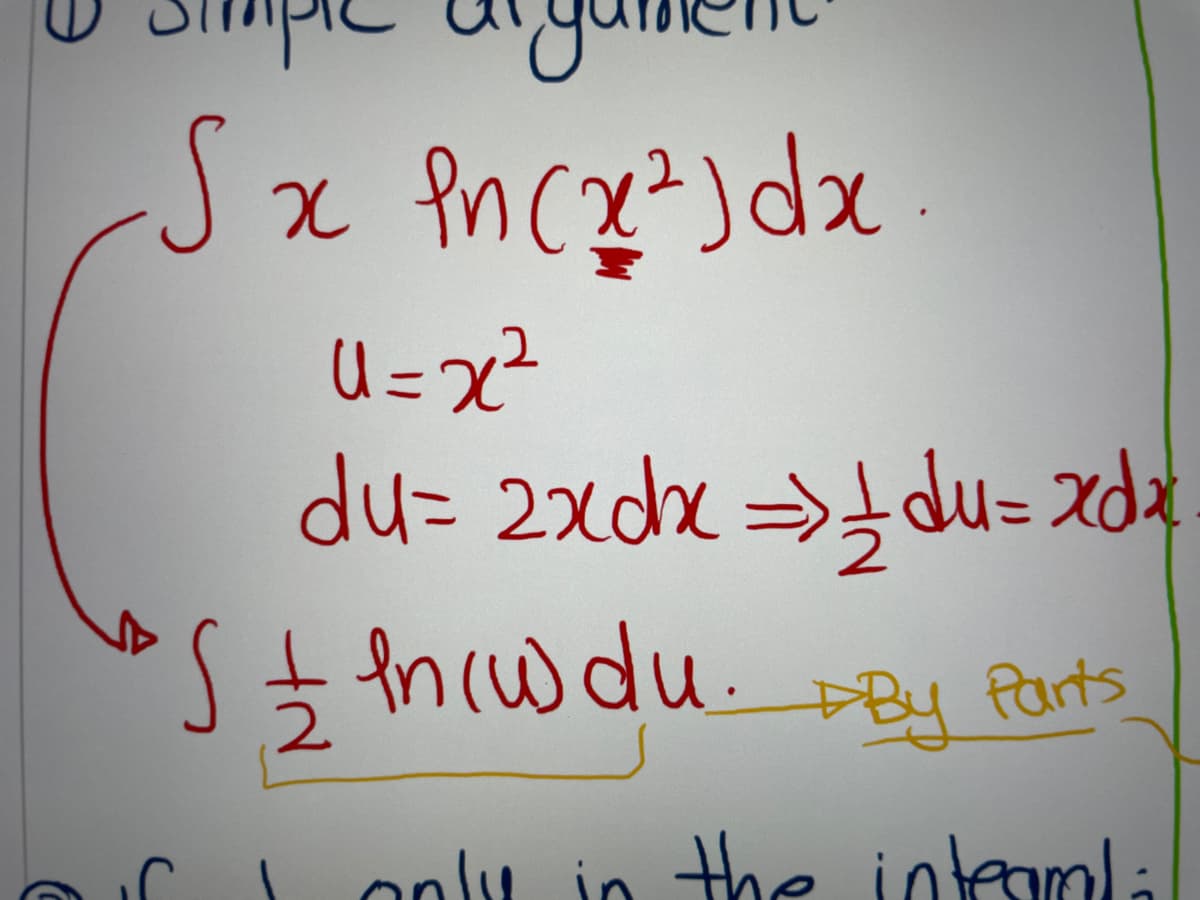 ① Simple argument.
∫ x ln(x²)dx.
u = x²
du = 2xdx ⇒ 1/2 du = xdx.
∫ 1/2 ln(u) du. By Parts
only in the integral: